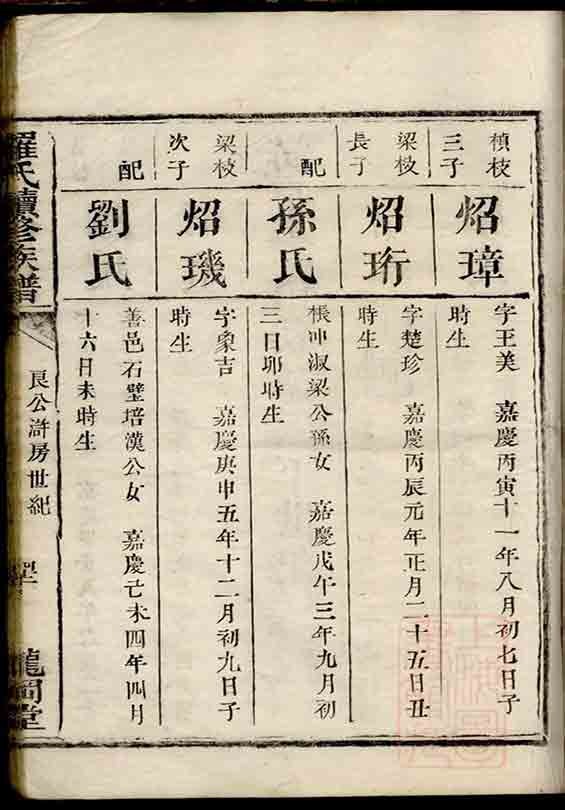 楨枝
三子
炤璋
字王美　嘉慶丙寅十一年八月初七日子
時生
梁枝
長子
炤珩
字楚珍　嘉慶丙辰元年正月二十五日丑
時生
配
孫氏
樟冲淑梁公孫女　嘉慶戊午三年九月初
三日卯時生
梁枝
次子
炤璣
字象吉　嘉慶庚申五年十二月初九日子
時生
配
劉氏
善邑石壁培漢公女　嘉慶己未四年四月
十六日未時生
羅氏續修族譜
良公滸房世紀
龍岡堂